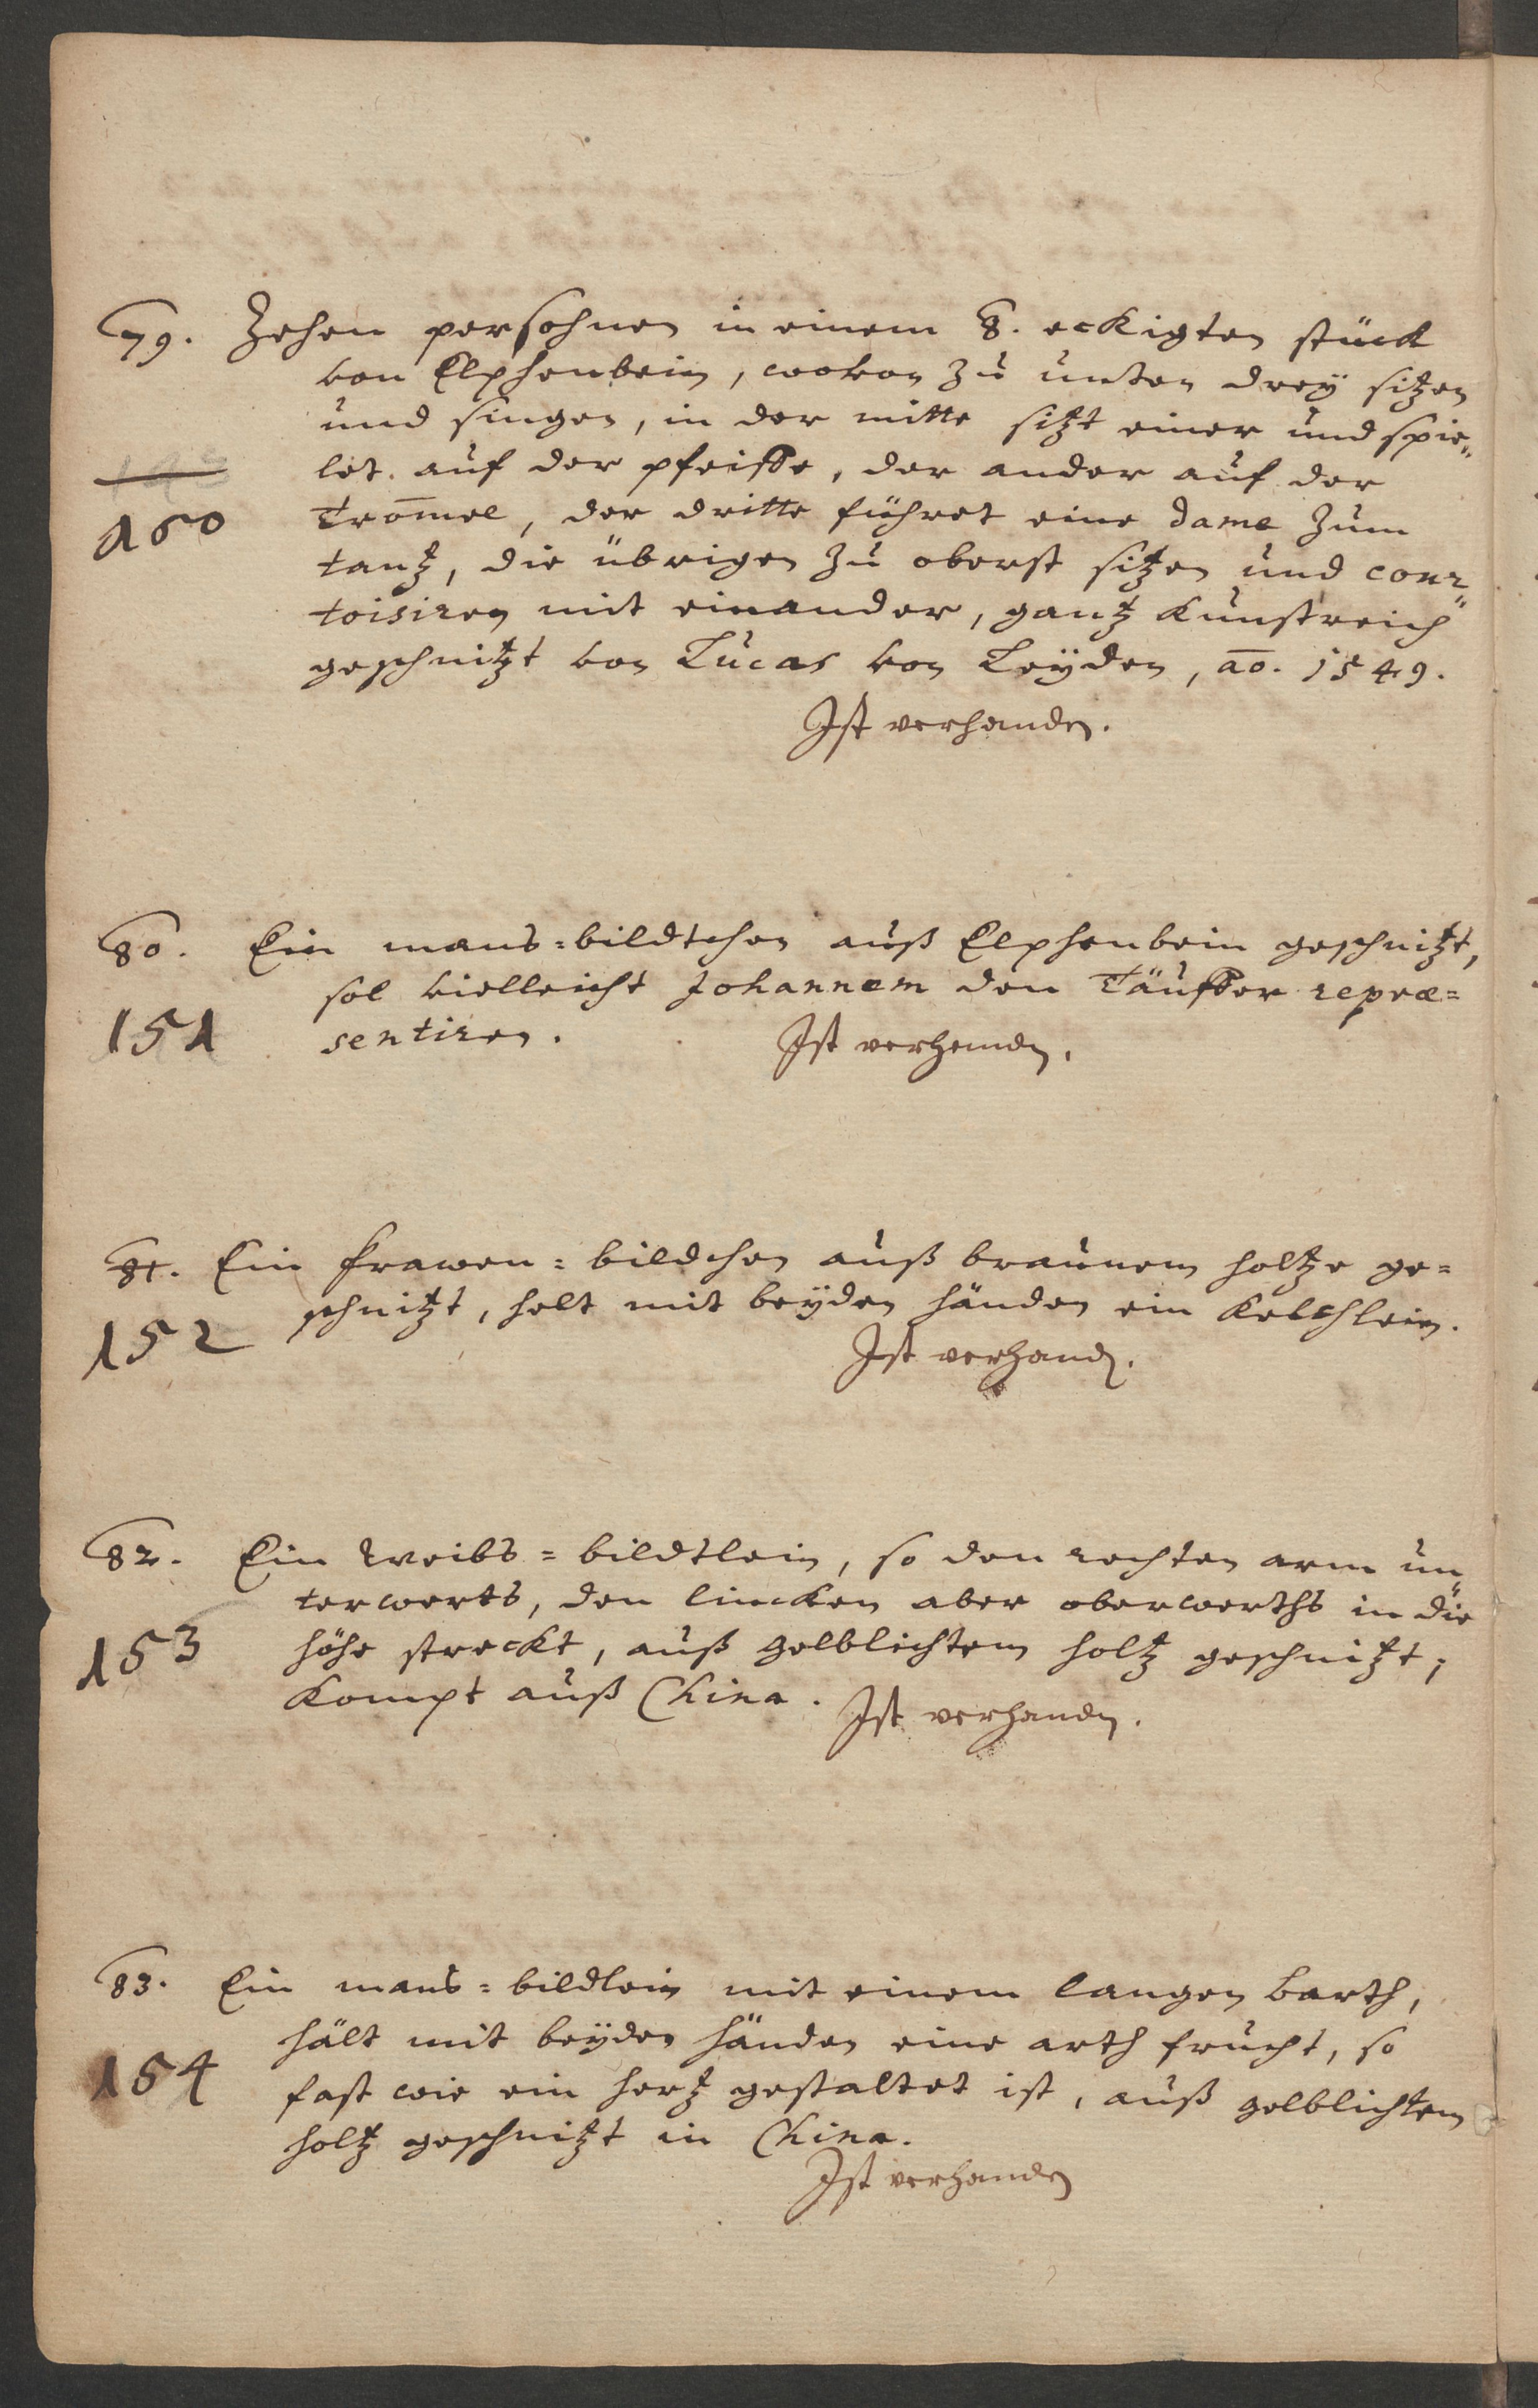 79. Zehen persohnen in einem 8. eckigten stück
von Elphenbein, wovon zu unten dreÿ sitzen
und singen, in der mitte sitzt einer und spie„
let auf der pfeiffe, der ander auf der
150
Trom̄el, der dritte führet eine dame zum
tantz, die übrigen zu oberst sitzen und cour„
toisiren mit einander, gantz kunstreich
geschnitzt von Lucas von Leÿden, ao. 1549.
Ist verhanden.
80. Ein mans=bildtchen auß Elphenbein geschnitzt,
sol vielleicht Johannem den Täuffer repræ=
151 sentiren.
Ist verhanden.
81. Ein frawen=bildchen auß braunem holtze ge=
schnitzt, helt mit beÿden händen ein Kelchlein.
152
Ist verhand.
82. Ein Weibs=bildtlein, so den rechten arm un„
terwerts, den lincken aber oberwerths in die
153 höhe streckt, auß gelblichtem holtz geschnitzt;
kompt auß China. Ist verhanden.
83. Ein mans=bildlein mit einem langen barth,
hält mit beÿden händen eine arth frucht, so
154 fast wie ein hertz gestaltet ist, auß gelblichtem
holtz geschnitzt in China.
Ist verhanden